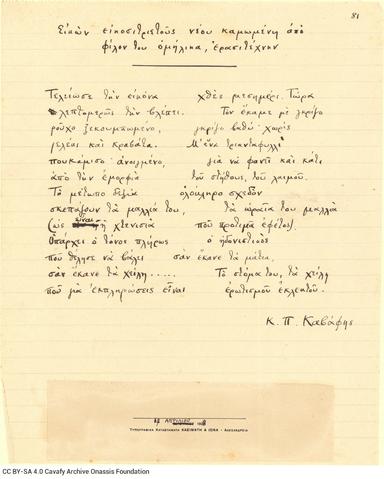 81
Εικών εικοσιτριετούς νέου καμωμένη από
φίλον του ομήλικα, ερασιτέχνην
Τελείωσε την εικόνα χθες μεσημέρι. Τώρα
λεπτομερώς την βλέπει. Τον έκαμε με γκρίζο
ρούχο ξεκουμπωμένο, γκρίζο βαθύ· χωρίς
γελέκι και κραβάτα. Μ' ένα τριανταφυλλί
πουκάμισο· ανοιγμένο, για να φανεί και κάτι
από την εμορφιά του στήθους, του λαιμού.
Το μέτωπο δεξιά ολόκληρο σχεδόν
σκεπάζουν τα μαλλιά του, τα ωραία του μαλλιά
(ως είναι η χτενισιά που προτιμά εφέτος).
Υπάρχει ο τόνος πλήρως ο ηδονιστικός
που θέλησε να βάλει σαν έκανε τα μάτια,
σαν έκανε τα χείλη..... Το στόμα του, τα χείλη
που για εκπληρώσεις είναι ερωτισμού εκλεκτού.
Κ. Π. Καβάφης
ΑΠΡΙΛΙΟΥ
ΤΥΠΟΓΡΑΦΙΚΑ ΚΑΤΑΣΤΗΜΑΤΑ ΚΑΣΙΜΑΤΗ & ΙΩΝΑ - ΑΛΕΞΑΝΔΡΕΙΑ
CC BY-SA 4.0 Cavafy Archive Onassis Foundation